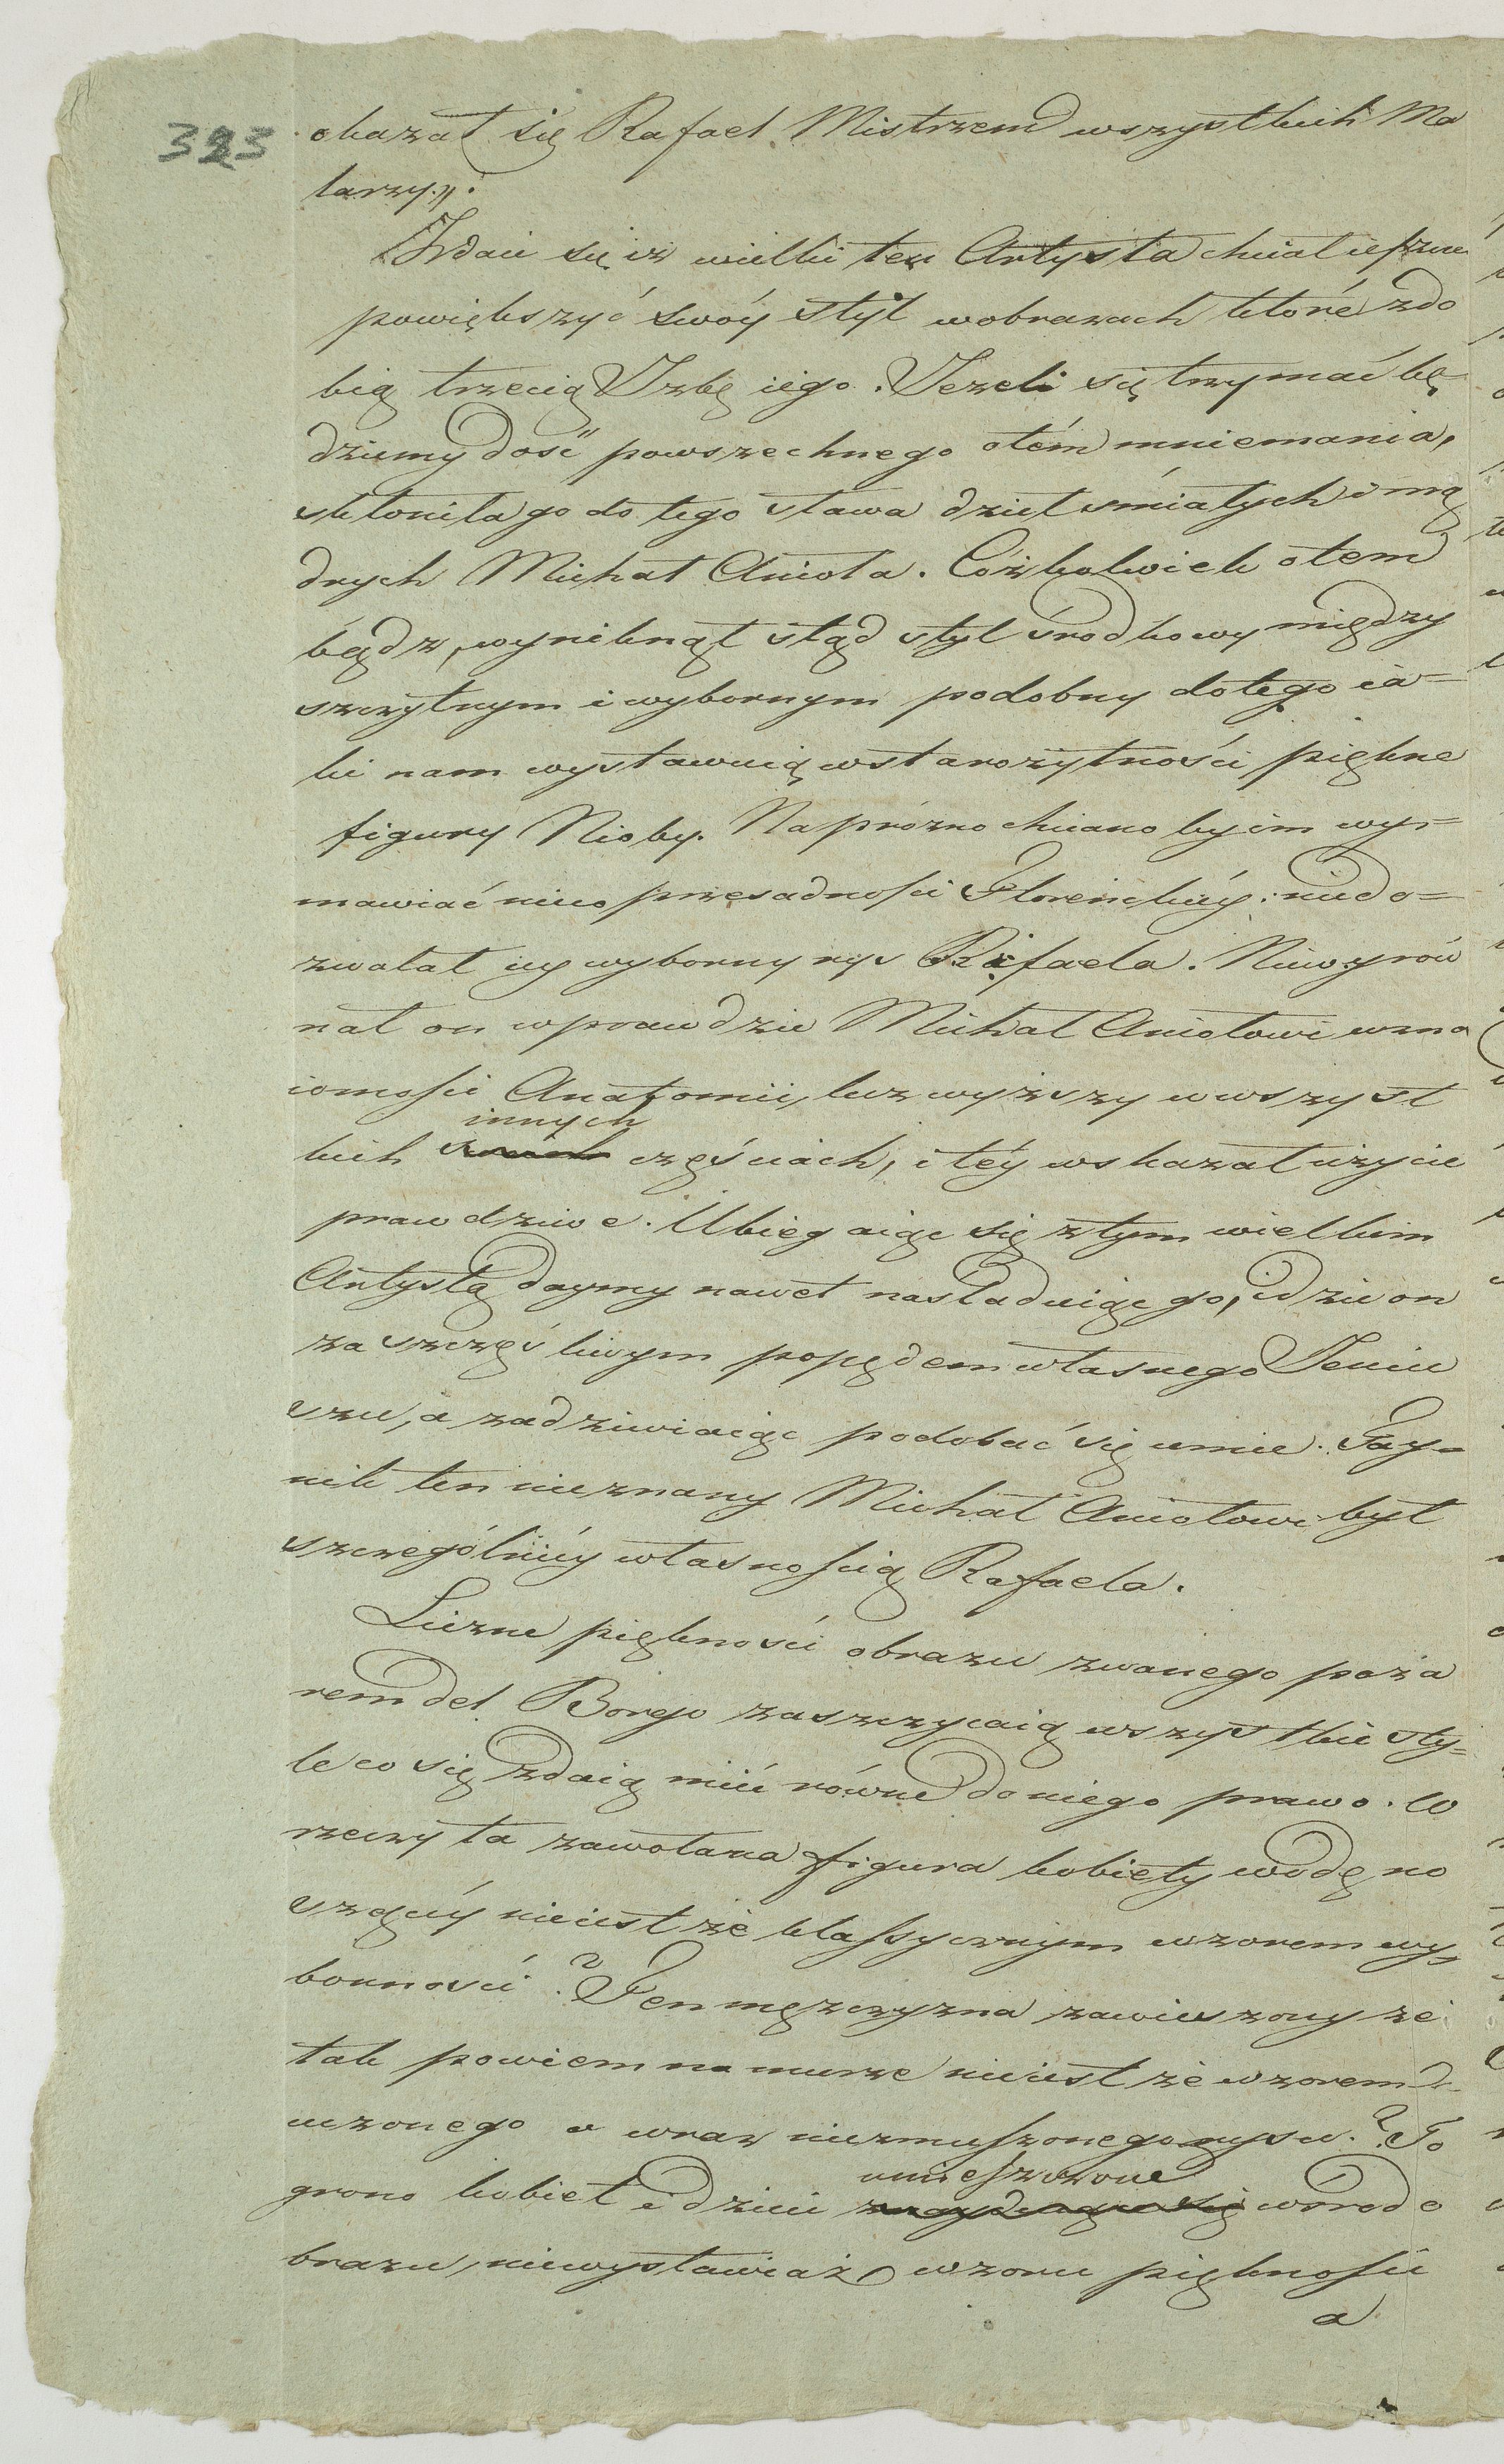 323
okazał się Rafael Mistrzem wszystkich Ma
larzy„.
Zdaie się iż wielki ten Artysta chciał ieszcze
powiększyć swóy styl w obrazach które zdo
bią trzecią Izbę iego. Jeżeli się trzymać bę=
dziemy dość powszechnego o tém mniemania,
skłoniła go do tego sława dzieł śmiałych i mą
drych Michał Anioła. Cóżkolwiek o tem
bądź, wyniknął stąd styl środkowy między
szczytnym i wybornym podobny do tego ia=
ki nam wystawuią w starożytności piękne
figury Nioby. Napróżno chciano by im wy=
mawiać nieco przesadności Florenckiéy: niedo=
zwalał iey wyborny rys Rafaela. Niewyrów
nał on wprawdzie Michał Aniołowi w zna
iomości Anatomii, lecz wyższy w wszyst
kich innych częściach, i téy wskazał użycie
prawdziwe. Ubiegaiąc się z tym wielkim
Artystą daymy nawet naśladuiąc go, idzie on
za szczęśliwym popędem własnego Jeniu
szu, a zadziwiaiąc podobać się umie. Tay=
nik ten nieznany Michał Aniołowi był
szczególniéy własnością Rafaela.
Liczne piękności obrazu zwanego poża
rem del Borgo zaszczycaią wszystkie sty=
le co się zdaią mieć równe do niego prawo. W
rzeczy ta zawołana figura kobiety wodę no
szącéy nieiest że klassycznym wzorem wy=
borności? Ten mężczyzna zawieszony że
tak powiem na murze nieiest że wzorem
uczonego a wraz niezmuszonego rysu? To
grono kobiet i dzieci umieszczone wśrod o
brazu, niewystawiaż wzoru piękności
a